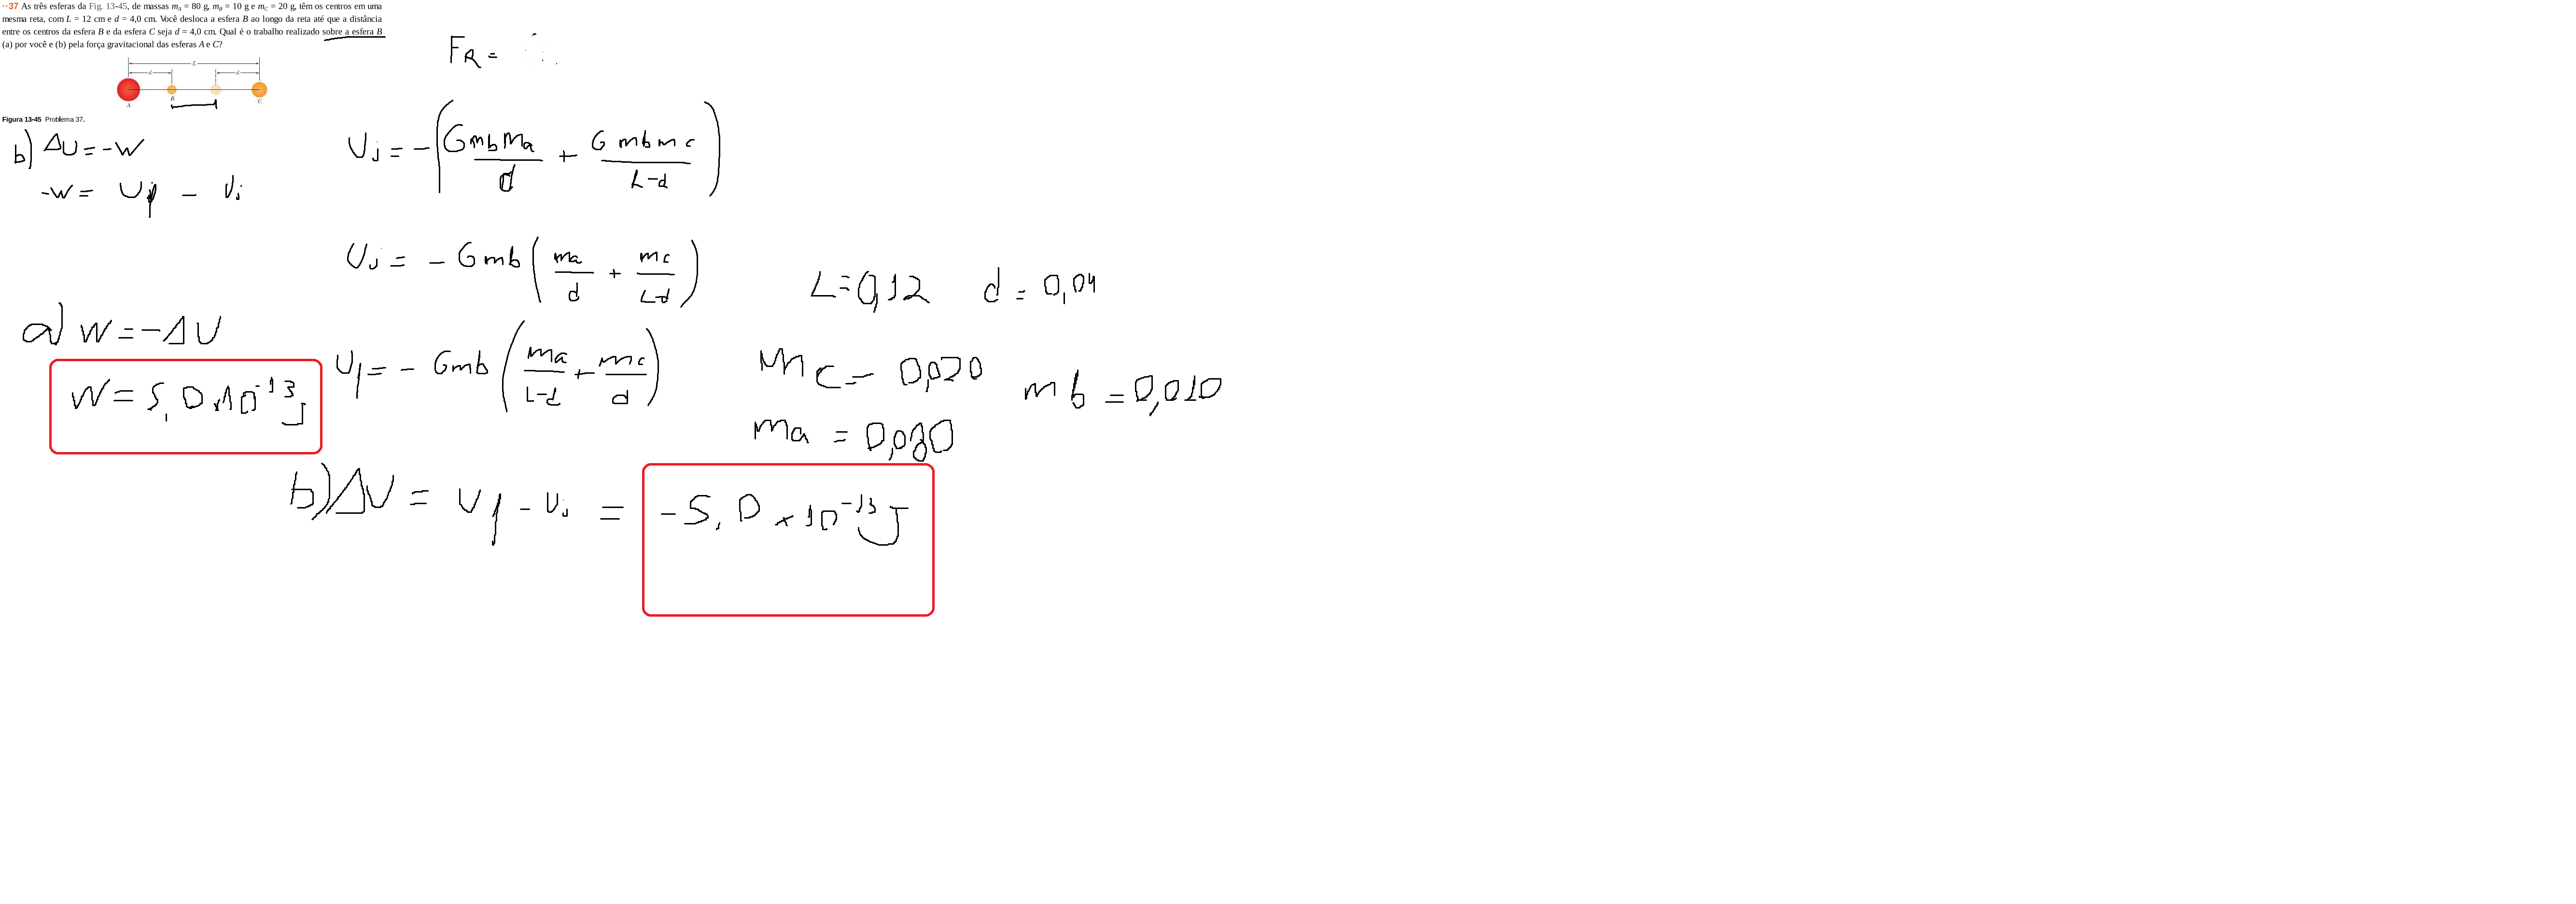 ··37 As três esferas da Fig. 13-45, de massas mA = 80 g, mB = 10 g e mC = 20 g, têm os centros em uma
mesma reta, com L = 12 cm e d = 4,0 cm. Você desloca a esfera B ao longo da reta até que a distância
entre os centros da esfera B e da esfera C seja d = 4,0 cm. Qual é o trabalho realizado sobre a esfera B
(a) por você e (b) pela força gravitacional das esferas A e C?
L
d d
A B C
Figura 13-45 Problema 37.
FR =
b) ΔU = -W
-W = Uf - Ui
Ui = -(G mb Ma / d + G mb mc / L-d)
Ui = - G mb (ma / d + mc / L-d)
L = 0,12 d = 0,04
a) W = -ΔU
W = 5,0 x 10^-13 J
Uf = - G mb (ma / L-d + mc / d)
mc = 0,020
mb = 0,010
ma = 0,080
b) ΔU = Uf - Ui = -5,0 x 10^-13 J